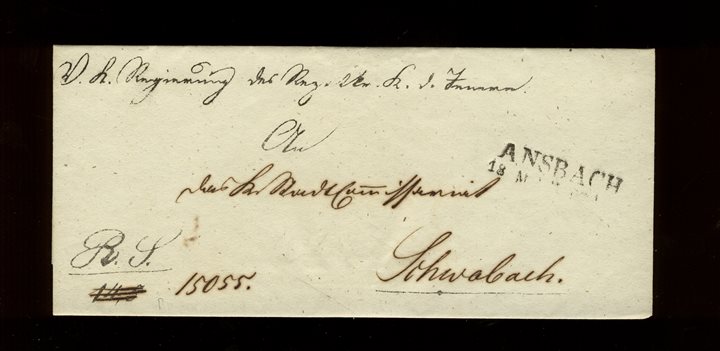 V. K. Regierung des Rez. Kr. K. d. Innern.
An
ANSBACH
18
das K. Stadt Commissariat
R. S.
Schwabach.
15055.